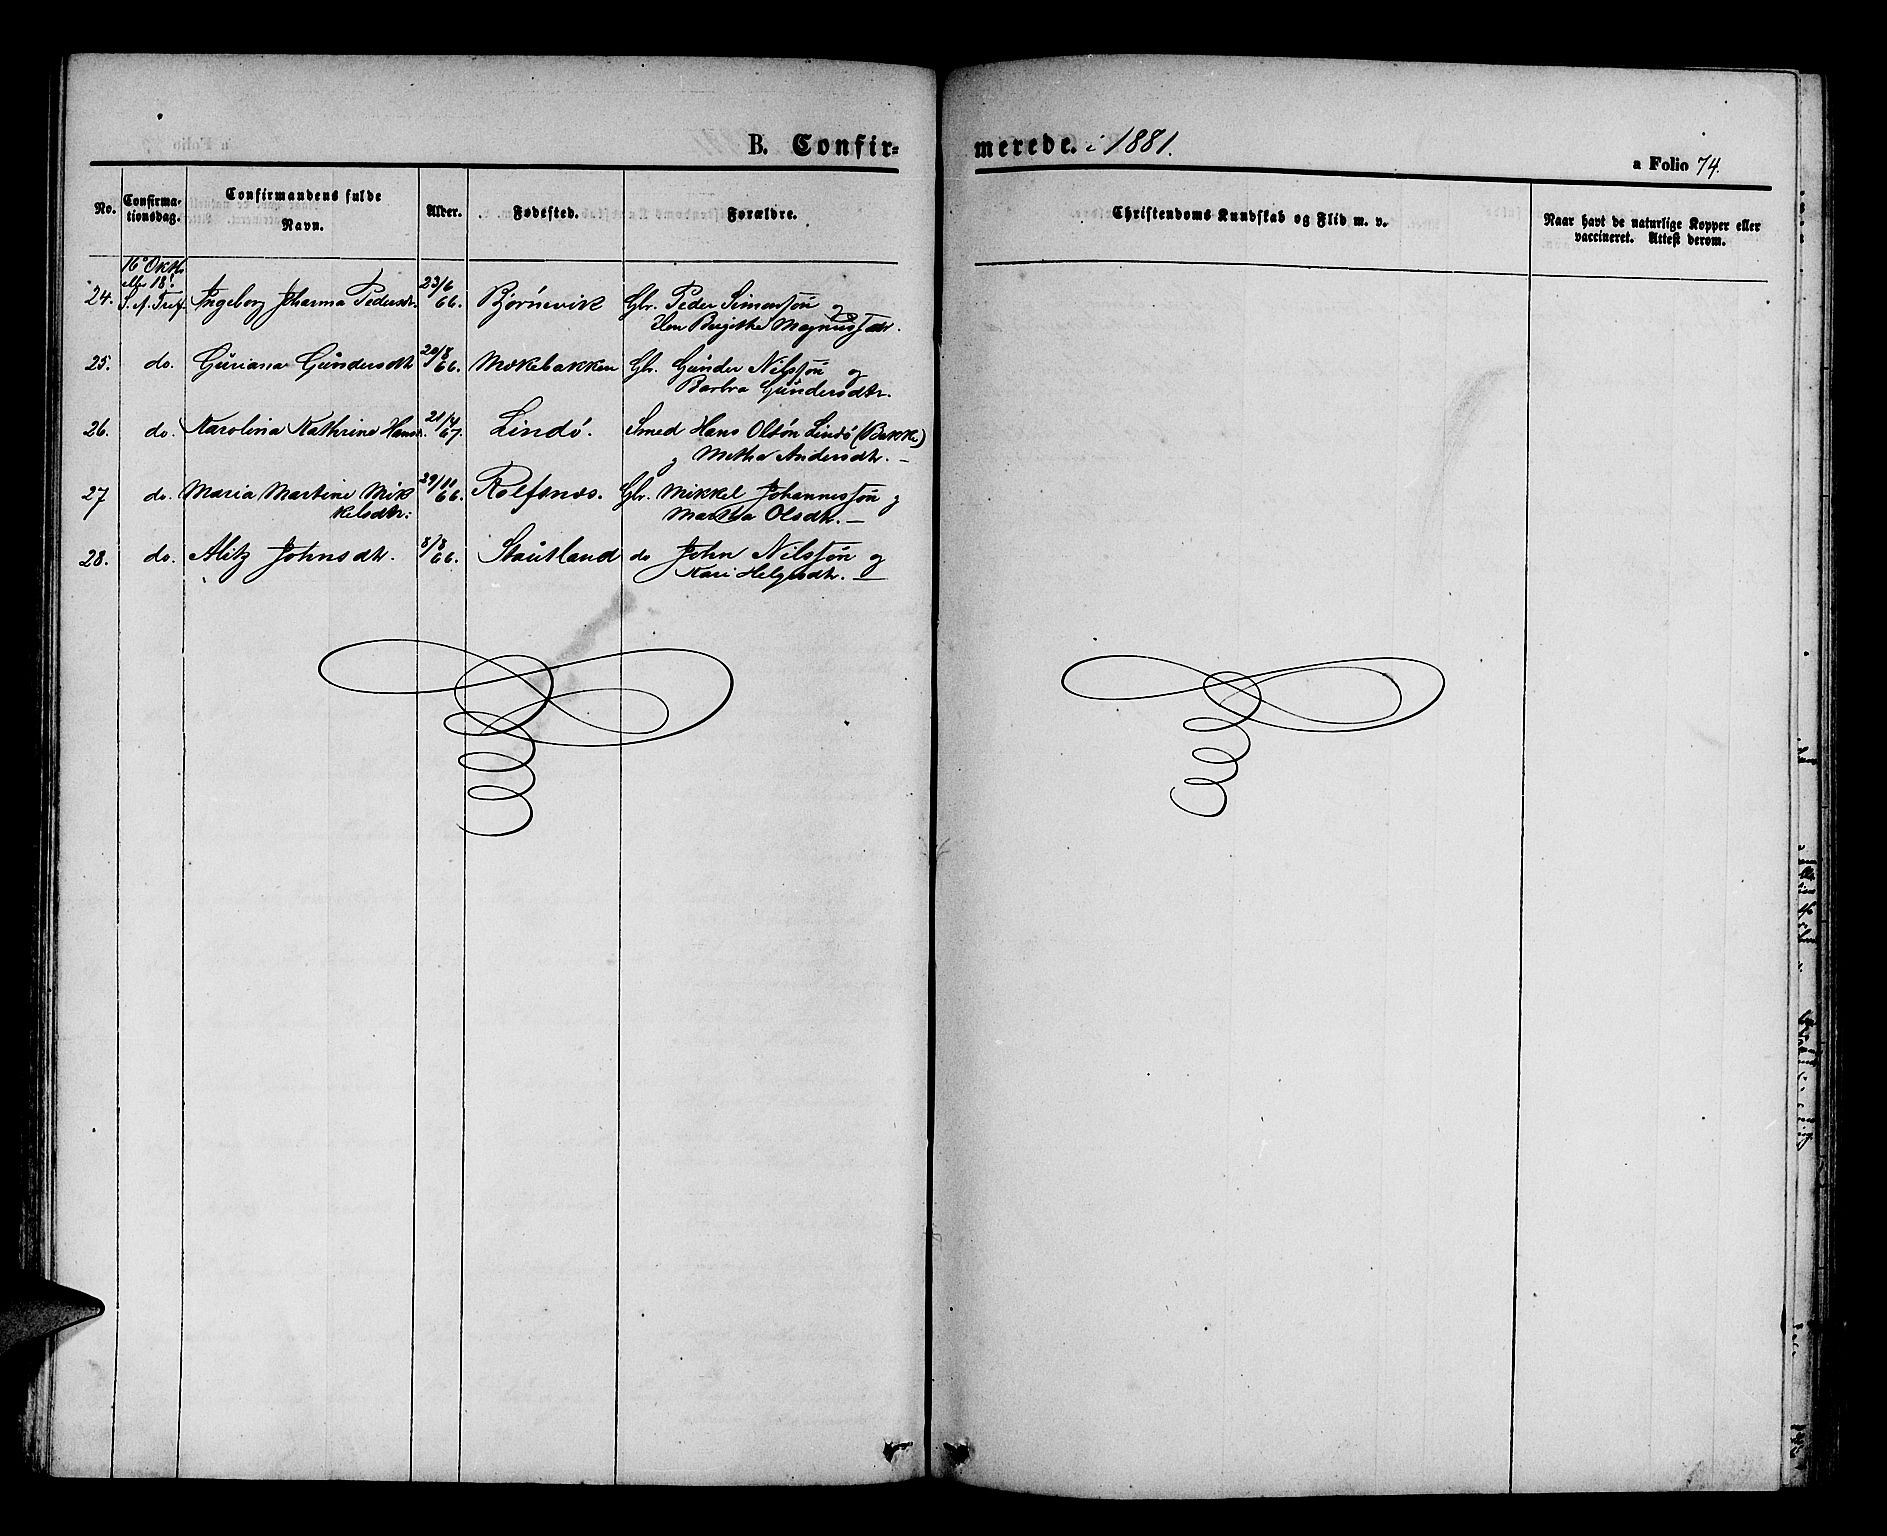 B. Confir-
merede. i 1881.
a Folio 74.
No.
Confirma-
tionsdag.
Confirmandens fulde
Navn.
Alder.
Fødested.
Forældre.
Christendoms Kundskab og Flid m. v.
Naar havt de naturlige Kopper eller
vaccineret. Attest derom.
24. 16de Oktb. 18. S. A. Tref. Ingeborg Johanna Pedersdtr. 23/6 66. Bjørnevik Gbr. Peder Simonsøn og
Elen Birgithe Magnusdtr.
25. do. Guriana Gundersdtr 20/8 66. Mokebakken Gbr. Gunder Nilssøn og
Barbra Gundersdtr.
26. do. Karolina Kathrine Hansd. 21/4 67. Lindö. Smed Hans Olsön Lindö (Bakke)
og Metha Andersdtr. —
27 do. Maria Martine Mik 29/11 66. Rolfsnes. Gbr. Mikkel Johannessøn og
kelsdtr: Martha Olsdtr. —
28. do. Alitz Johnsdtr. 8/8 66. Stautland do John Nilssøn og
Kari Helgesdtr. —